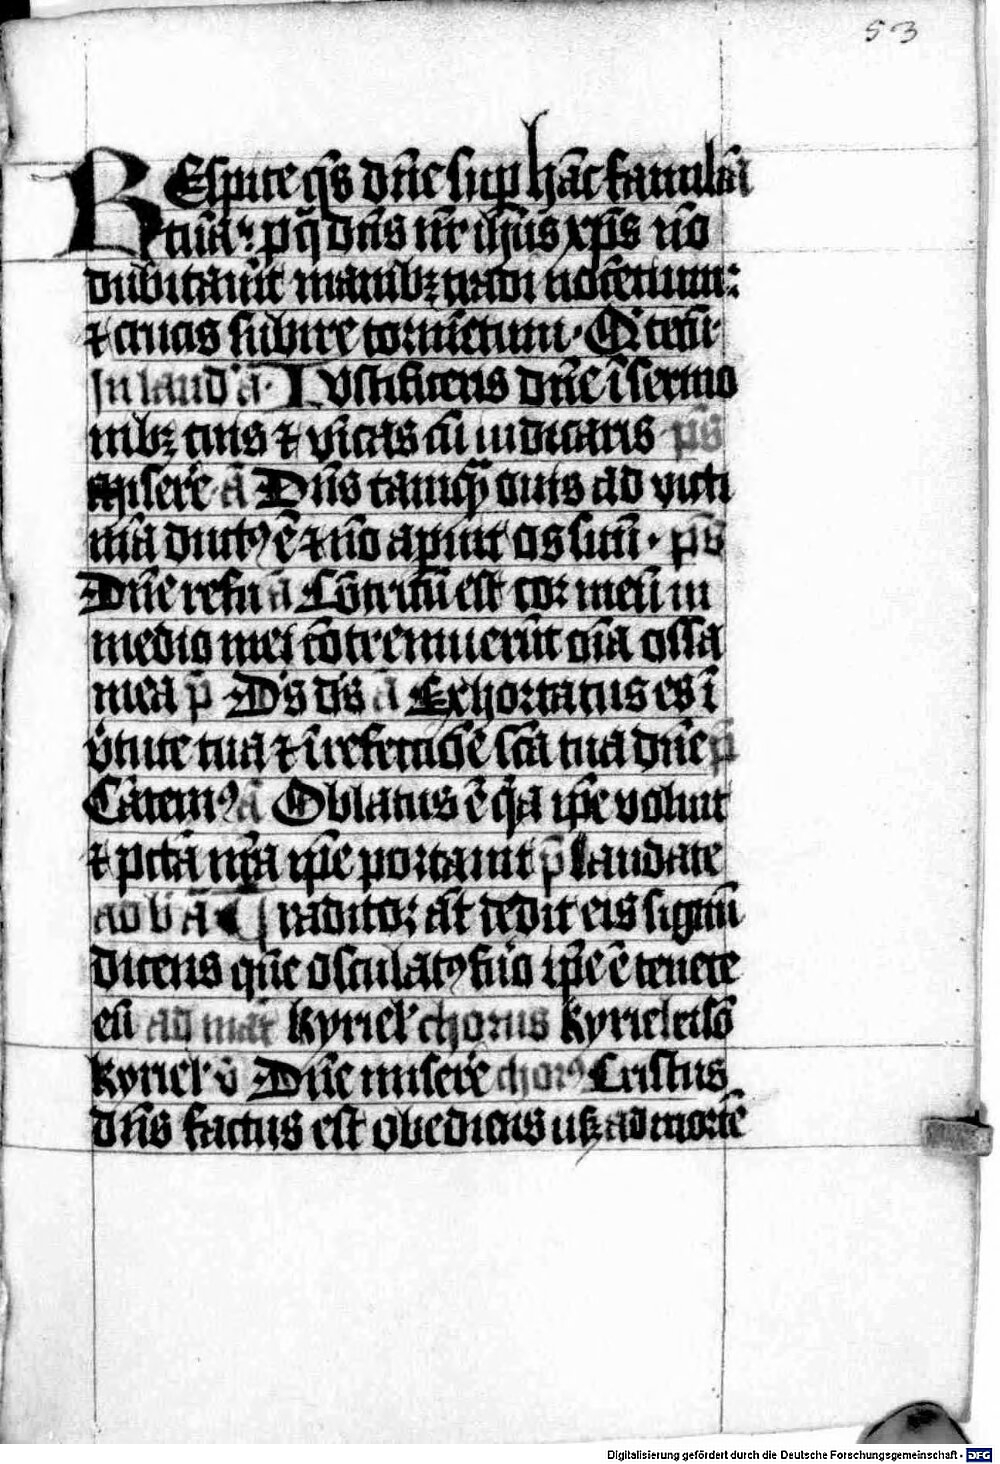 53
REspice q̄s dn̄e sup̱ hāc familiā
tuā: ꝓ q̄ dn̄s nr̄ ih̄us xp̄s nō
dubitauit manibꝫ tradi nocētium:
⁊ crucis subire tormētum. Q̇ tecū
In laud' a᷎. IVstificeris dn̄e ī sermo
nibꝫ tuis ⁊ vīcas cū iudicaris p̄s
Miserē a᷎ Dn̄s tamq̄ ouis ad victi
mā ductꝰ ē ⁊ nō aperuit os suū. p̄s
Dn̄e refu a᷎ Cōtritū est cor meū in
medio mei cōtremuerūt oīa ossa
mea p̄ D's d's a᷎ Exhortatus es ī
v̓tute tua ⁊ ī refectiōe scā tua dn̄e p̄
Cātemꝰ a᷎ Oblatus ē q̇a ip̄e voluit
⁊ pctā nrā ip̄e portauit p̄ Laudate
ad b̄ a᷎ Traditor āt dedit eis signū
dicens quē osculatꝰ fūo ip̄e ē tenete
eū ad mat̄ kyriel' chorus kyrieleisō
kyriel' v̄ Dn̄e miserē chorꝰ Cristus
dn̄s factus est obediens usqꝫ ad mortē
Digitalisierung gefördert durch die Deutsche Forschungsgemeinschaft - DFG